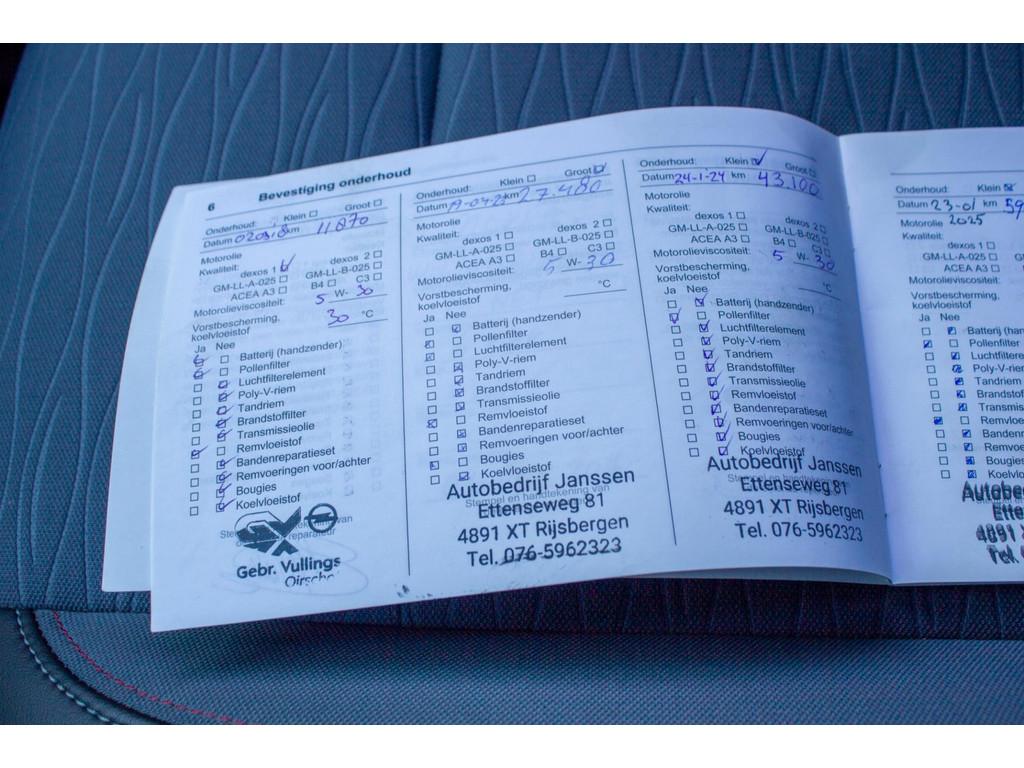 6 Bevestiging onderhoud
Onderhoud: Klein Groot
Datum km 11870
Motorolie
Kwaliteit:
dexos 1 dexos 2
GM-LL-A-025 GM-LL-B-025
ACEA A3 B4 C3
Motorolieviscositeit: 5 W- 30
Vorstbescherming, koelvloeistof 30 °C
Ja Nee
Batterij (handzender)
Pollenfilter
Luchtfilterelement
Poly-V-riem
Tandriem
Brandstoffilter
Transmissieolie
Remvloeistof
Bandenreparatieset
Remvoeringen voor/achter
Bougies
Koelvloeistof
Gebr. Vullings
Onderhoud: Klein Groot
Datum km 27.480
Motorolie
Kwaliteit:
dexos 1 dexos 2
GM-LL-A-025 GM-LL-B-025
ACEA A3 B4 C3
Motorolieviscositeit: 5 W- 30
Vorstbescherming,
koelvloeistof °C
Ja Nee
Batterij (handzender)
Pollenfilter
Luchtfilterelement
Poly-V-riem
Tandriem
Brandstoffilter
Transmissieolie
Remvloeistof
Bandenreparatieset
Remvoeringen voor/achter
Bougies
Koelvloeistof
Autobedrijf Janssen
Stempel en handtekening van
Ettenseweg 81
4891 XT Rijsbergen
Tel. 076-5962323
Onderhoud: Klein Groot
Datum 24-1-24 km 43.100
Motorolie
Kwaliteit:
dexos 1 dexos 2
GM-LL-A-025 GM-LL-B-025
ACEA A3 B4 C3
Motorolieviscositeit: 5 W- 30
Vorstbescherming,
koelvloeistof °C
Ja Nee
Batterij (handzender)
Pollenfilter
Luchtfilterelement
Poly-V-riem
Tandriem
Brandstoffilter
Transmissieolie
Remvloeistof
Bandenreparatieset
Remvoeringen voor/achter
Bougies
Koelvloeistof
Autobedrijf Janssen
Ettenseweg 81
4891 XT Rijsbergen
Tel. 076-5962323
Onderhoud: Klein
Datum 23-01 km 59
Motorolie 2025
Kwaliteit:
dexos 1
GM-LL-A-025
ACEA A3
Motorolieviscositeit:
Vorstbescherming,
koelvloeistof
Ja Nee
Batterij (han
Pollenfilter
Luchtfilterele
Poly-V-riem
Tandriem
Brandstof
Transmiss
Remvloe
Banden
Remvo
Bougies
Koelvl
Autobe
Ette
4891
Tel.